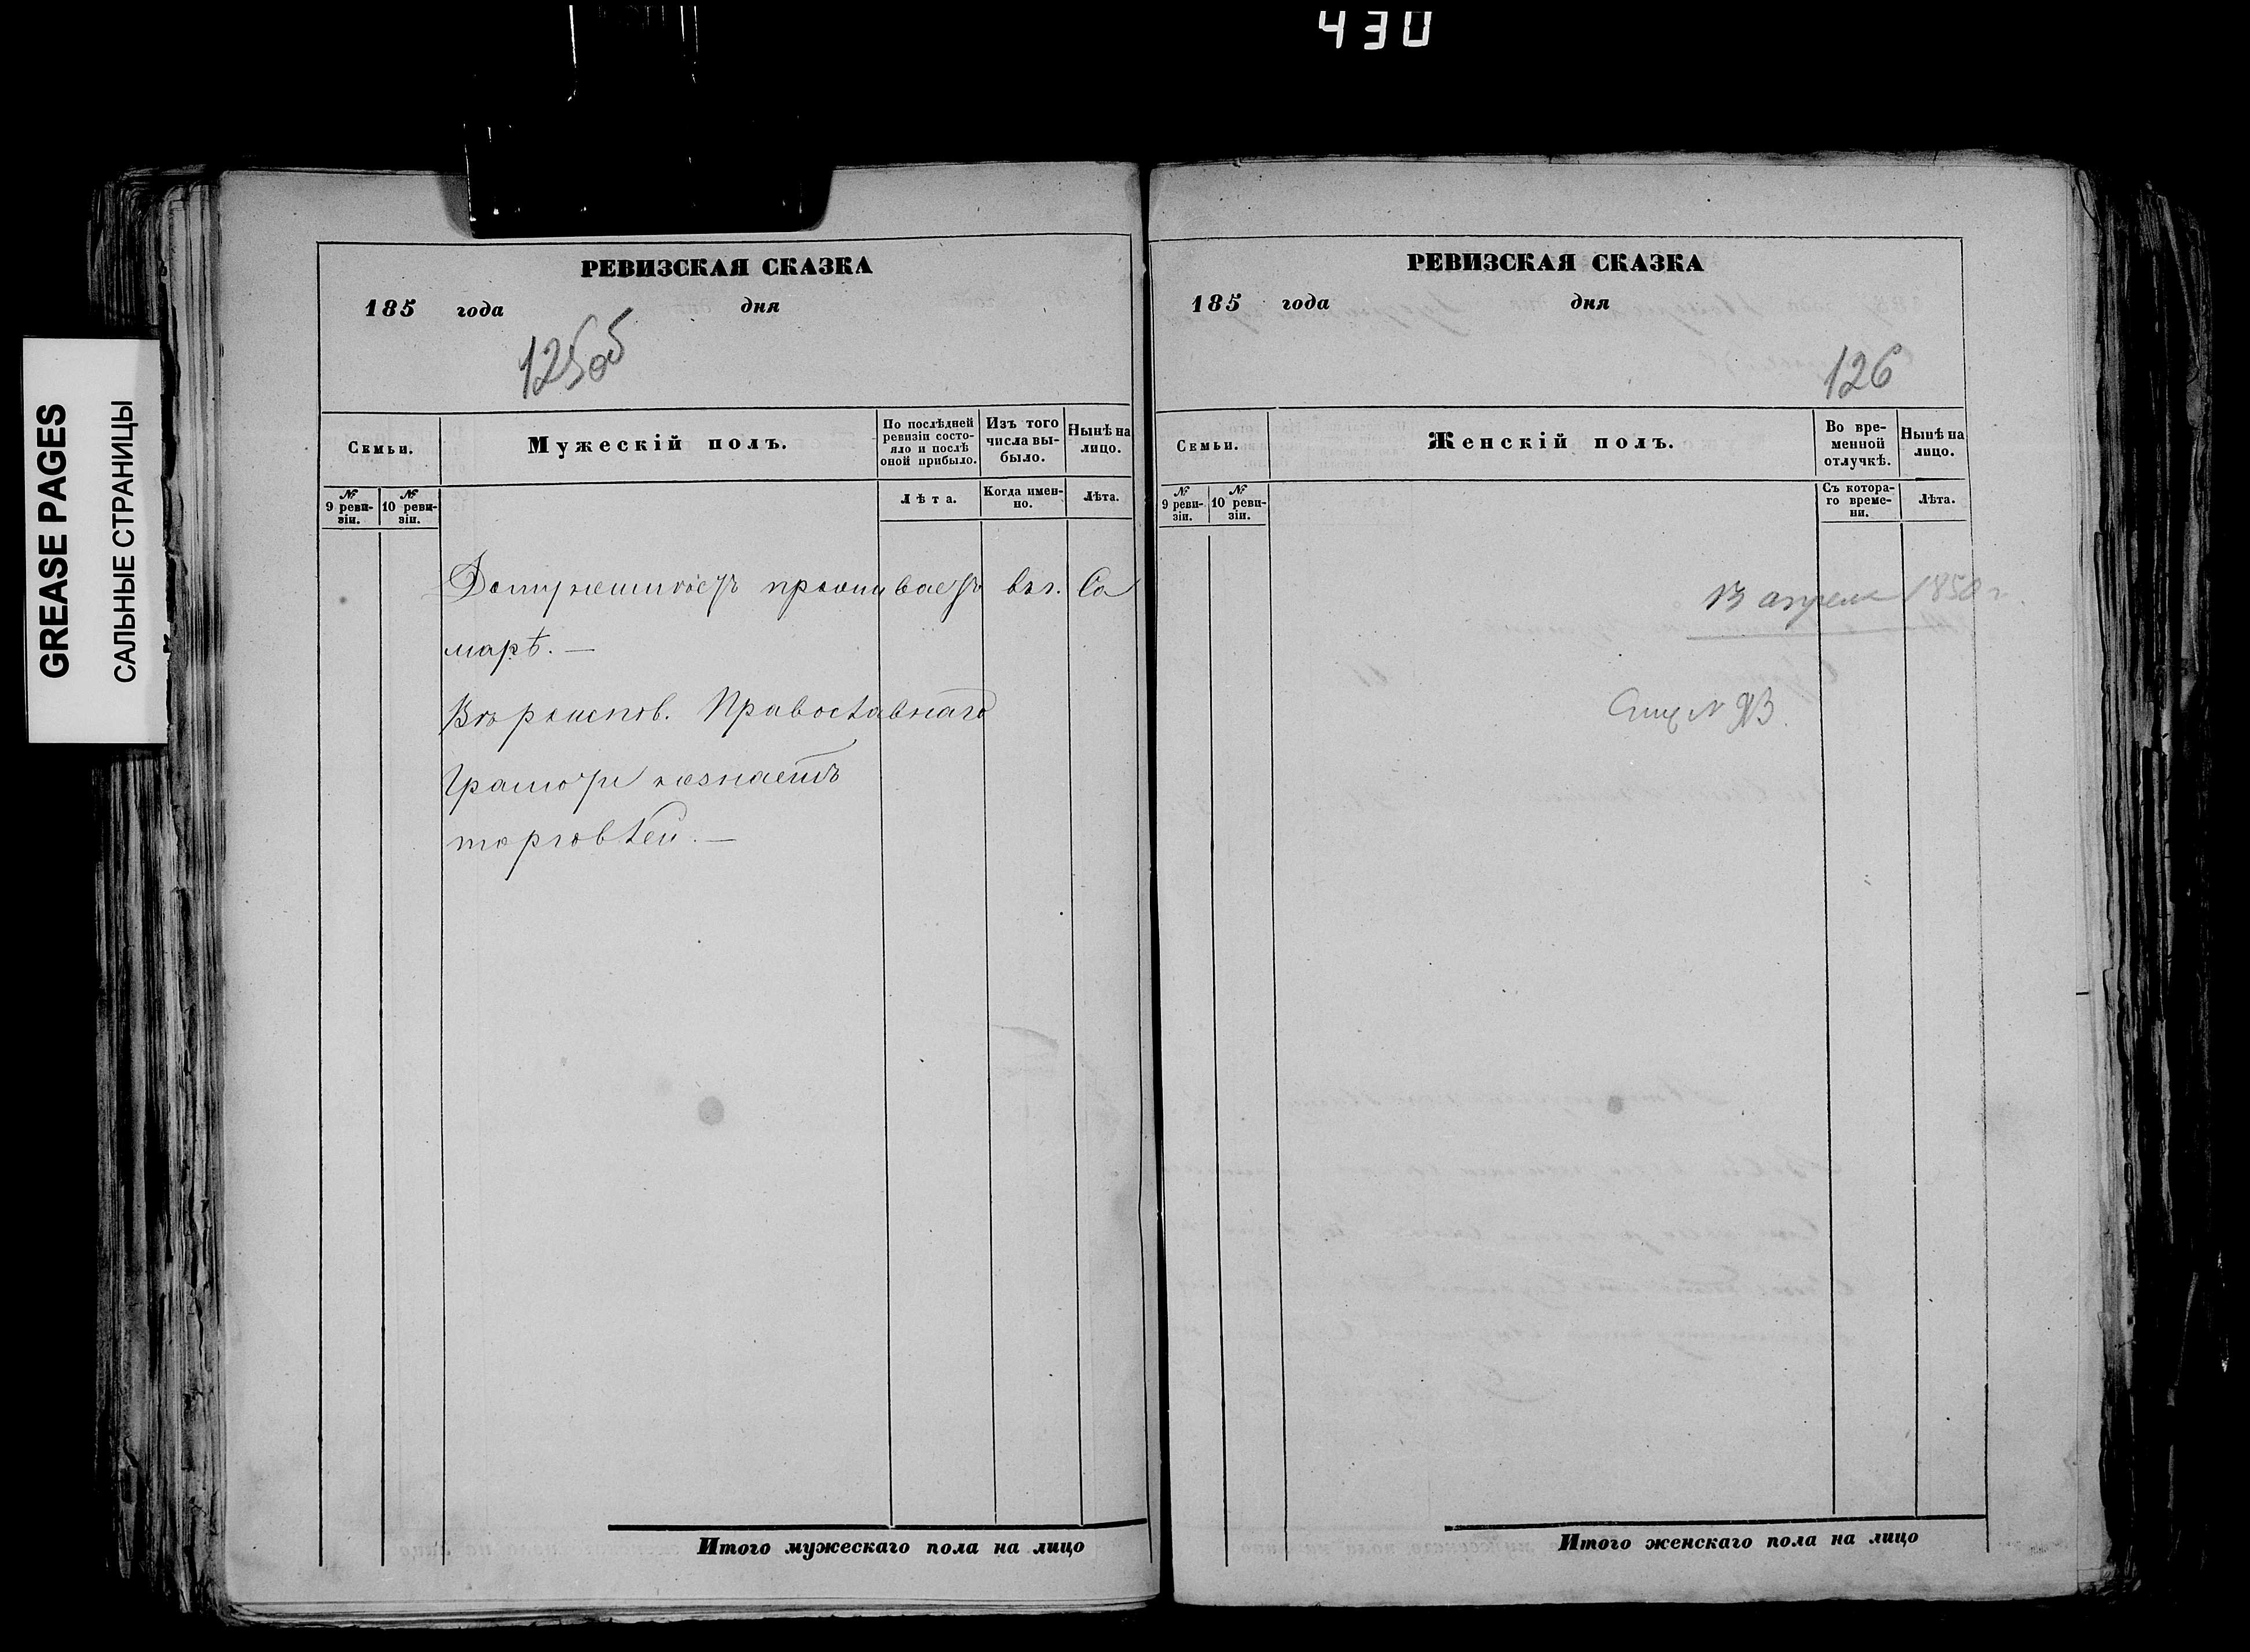 430
GREASE PAGES
САЛЬНЫЕ СТРАНИЦЫ
РЕВИЗСКАЯ СКАЗКА
185 года дня
125об
Семьи.
Мужескій полъ.
По послѣдней ревизіи состояло и послѣ оной прибыло.
Изъ того числа выбыло.
Нынѣ на лицо.
№ 9 ревизіи.
№ 10 ревизіи.
Лѣта.
Когда именно.
Лѣта.
проживаетъ въ г. Са
марѣ. —
Вѣроиспов. Православнаго
Грамоте незнаетъ
торговлей. —
Итого мужескаго пола на лицо
РЕВИЗСКАЯ СКАЗКА
185 года дня
126
Семьи.
Женскій полъ.
Во временной отлучкѣ.
Нынѣ на лицо.
№ 9 ревизіи.
№ 10 ревизіи.
Съ котораго времени.
Лѣта.
апреля 1850 г.
Итого женскаго пола на лицо